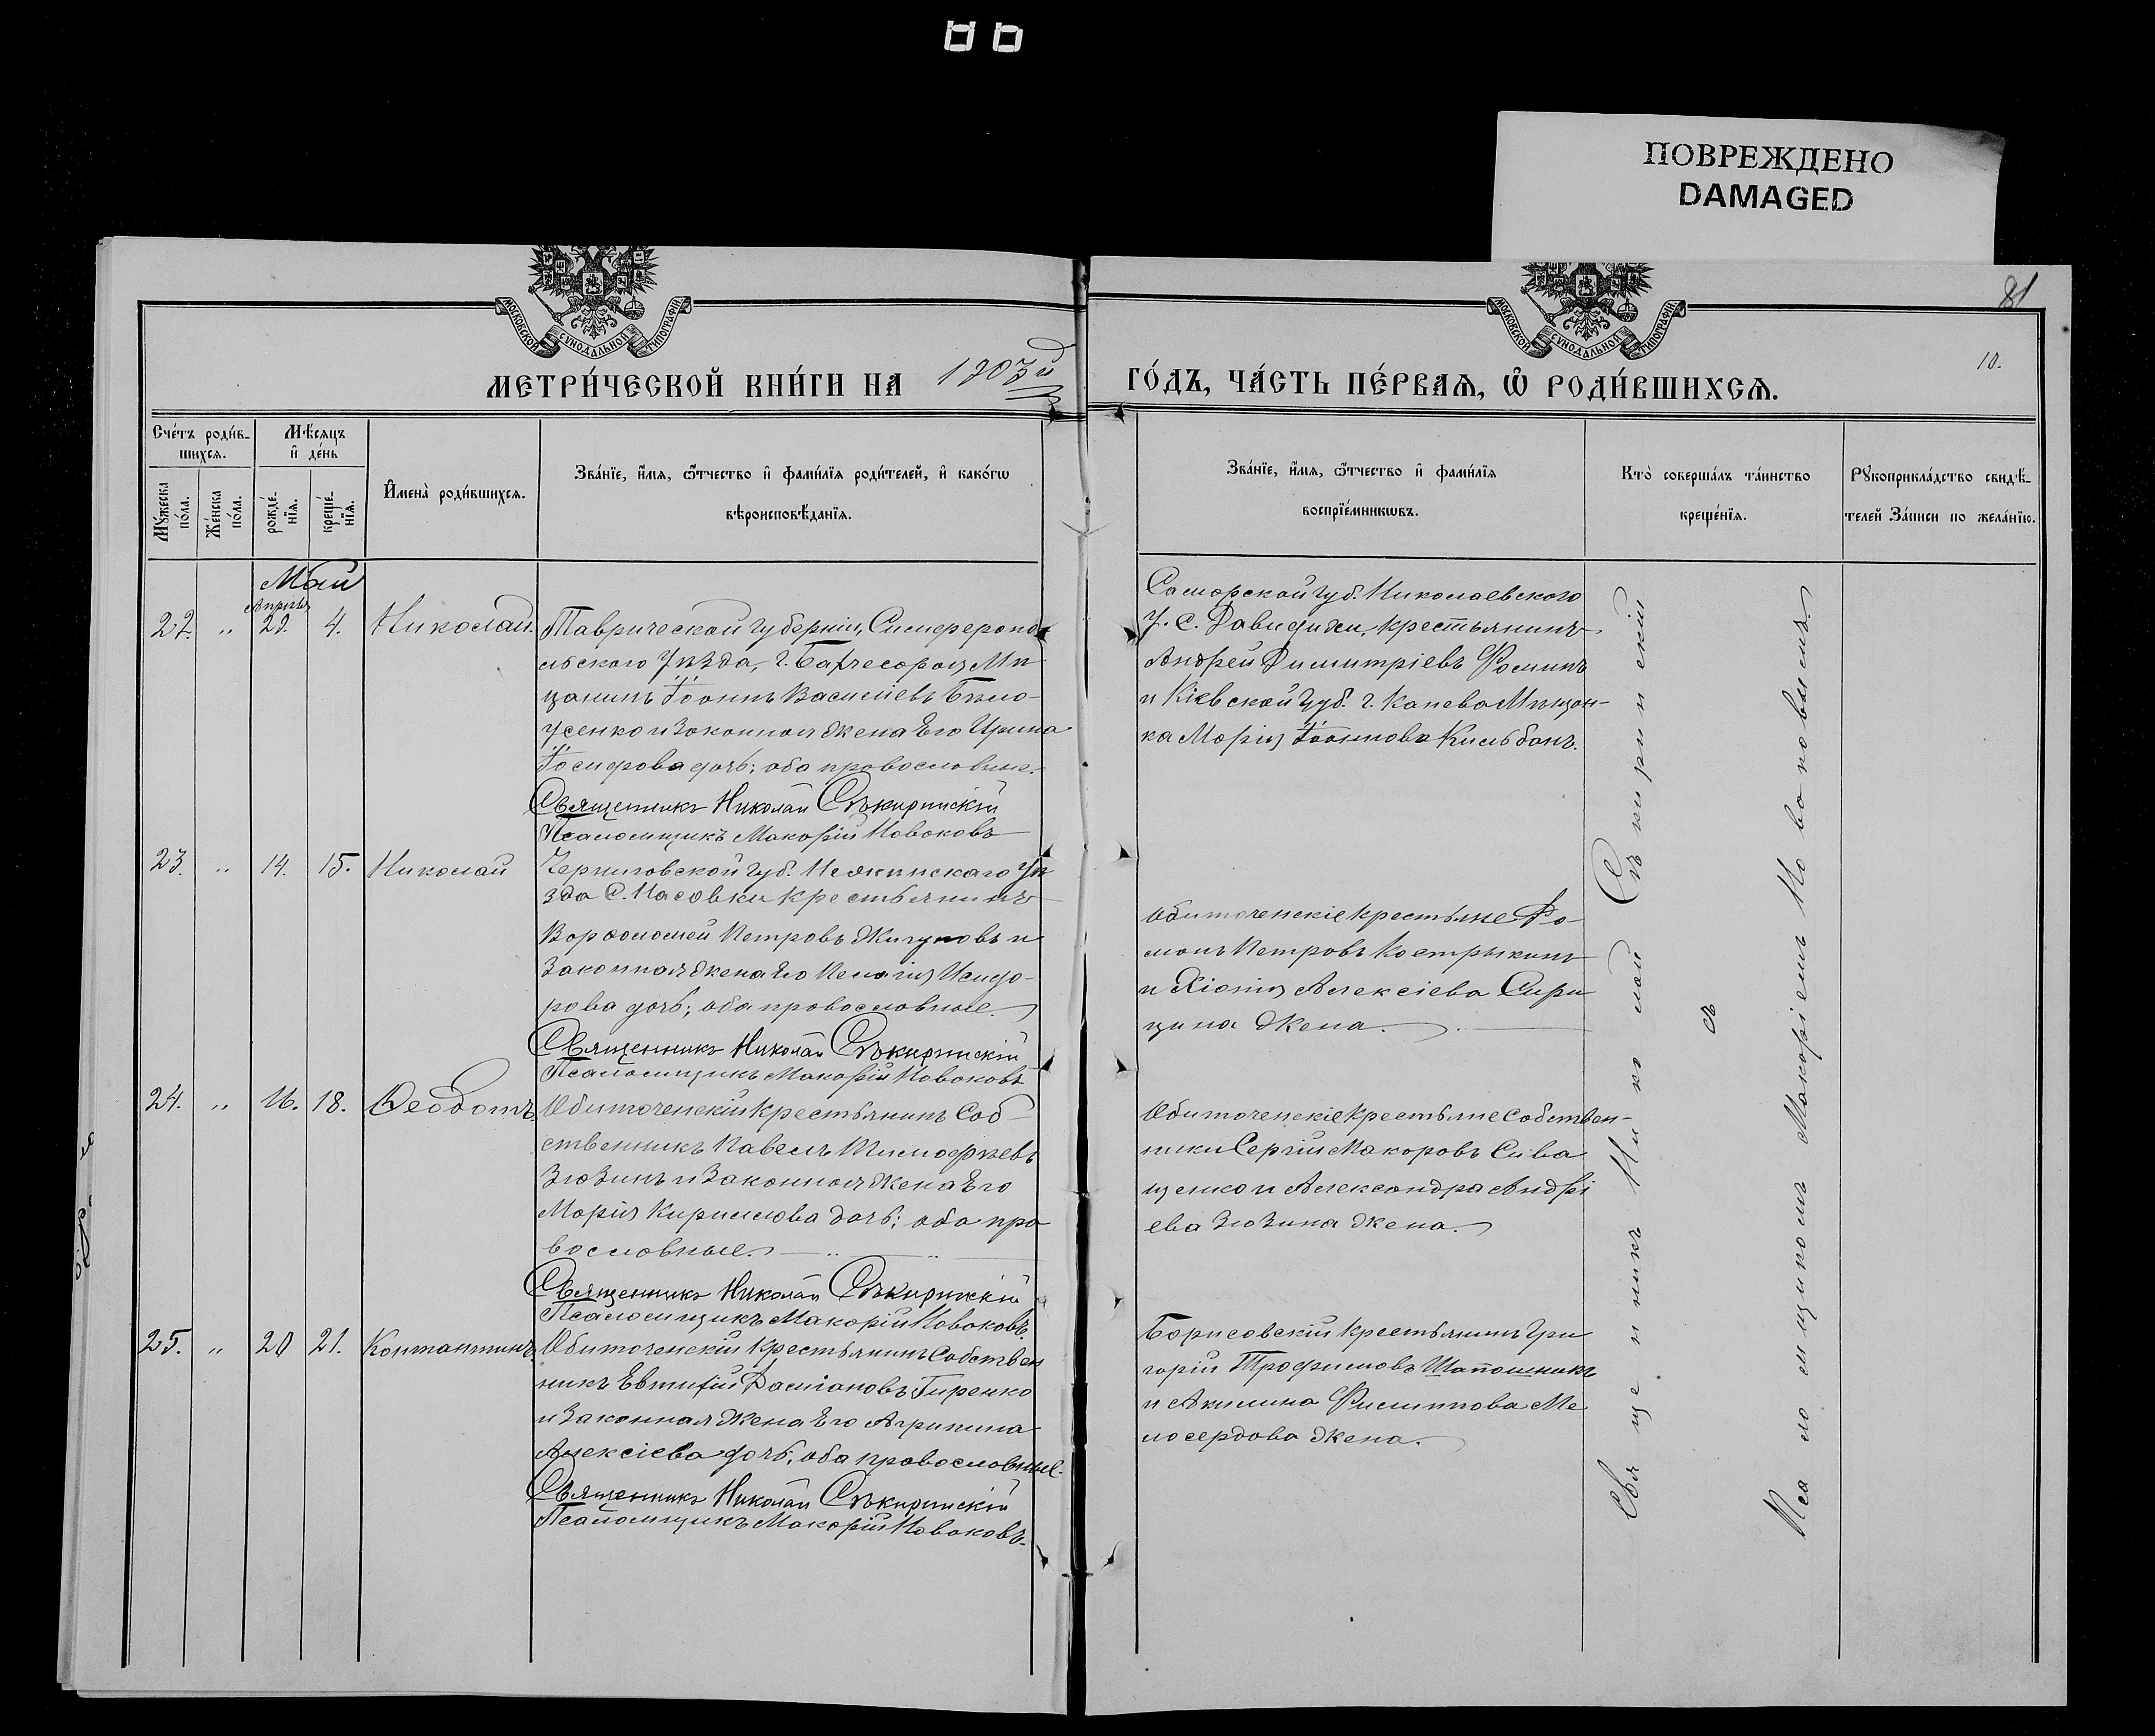 ПОВРЕЖДЕНО
DAMAGED
81
10.
МОСКОВСКОЙ СѴНОДАЛЬНОЙ ТИПОГРАФІИ
МОСКОВСКОЙ СѴНОДАЛЬНОЙ ТИПОГРАФІИ
МЕТРИ́ЧЕСКОЙ КНИ́ГИ НА 1903й
ГО́ДЪ, ЧА́СТЬ ПЕ́РВАЯ, Ѡ҆ РОДИ́ВШИХСЯ.
Сче́тъ роди́в-
шихся.
Мꙋ́жеска по́ла.
Же́нска по́ла.
Мѣ́сяцъ
и҆ де́нь
рожде́-
нїя.
креще́-
нїя.
И҆мена̀ роди́вшихся.
Зва́нїе, и҆́мя, ѻ҆́тчество и҆ фами́лїя роди́телей, и҆ како́гѡ
вѣроисповѣ́данїя.
Зва́нїе, и҆́мя, ѻ҆́тчество и҆ фами́лїя
воспрїе́мникѡвъ.
Кто̀ соверша́лъ та́инство
креще́нїя.
Рꙋкоприкла́дство свидѣ́-
телей за́писи по жела́нїю.
Май
Апрѣль
22. " 29. 4. Николай.
Таврической губерніи, Симферопо-
льскаго уѣзда, г. Бахчесарая Мѣ
щанинъ Іоаннъ Василіевъ Бѣло-
усенко и Законная жена Его Ирина
Іосифова дочь; оба православные.
Священникъ Николай Сѣкиринскій
Псаломщикъ Макарій Новаковъ
Самарской губ. Николаевскаго
У. с. Давидовки, крестьянинъ
Андрей Димитріевъ Фоминъ
и Кіевской губ. г. Канева Мѣщан-
ка Марія Іоаннова Кильбанъ.
23. " 14. 15. Николай
Черниговской губ. Нежинскаго уѣ
зда С. Насовки крестьянинъ
Варфоломей Петровъ Жигуновъ и
Законная жена Его Пелагія Исидо-
рова дочь; оба православные.
Священникъ Николай Сѣкиринскій
Псаломщикъ Макарій Новаковъ
Обиточенскіе крестьяне Ро-
манъ Петровъ Кострыкинъ
и Хіонія Алексіева Сири
цина жена.
24. " 16. 18. Ѳеодотъ
Обиточенскій крестьянинъ Соб-
ственникъ Павелъ Тимофѣевъ
Зюзинъ и Законная жена Его
Марія Кириллова дочь; оба пра
вославные.
Священникъ Николай Сѣкиринскій
Псаломщикъ Макарій Новаковъ.
Обиточенскіе крестьяне Собствен-
ники Сергій Макаровъ Сива
щенко и Александра Андрі
ева Зюзина жена.
25. " 20 21. Контантинъ
Обиточенскій крестьянинъ Собствен
никъ Евтихій Даміановъ Гиренко
и Законная жена Его Агрипина
Алексіева дочь; оба православные.
Священникъ Николай Сѣкиринскій
Псаломщикъ Макарій Новаковъ.
Борисовскій крестьянинъ Гри
горій Трофимовъ Шаповникъ
и Акилина Филиппова Ме
лосердова жена.
Священникъ Николай Сѣкиринскій
съ
Псаломщикомъ Макаріемъ Новаковымъ.